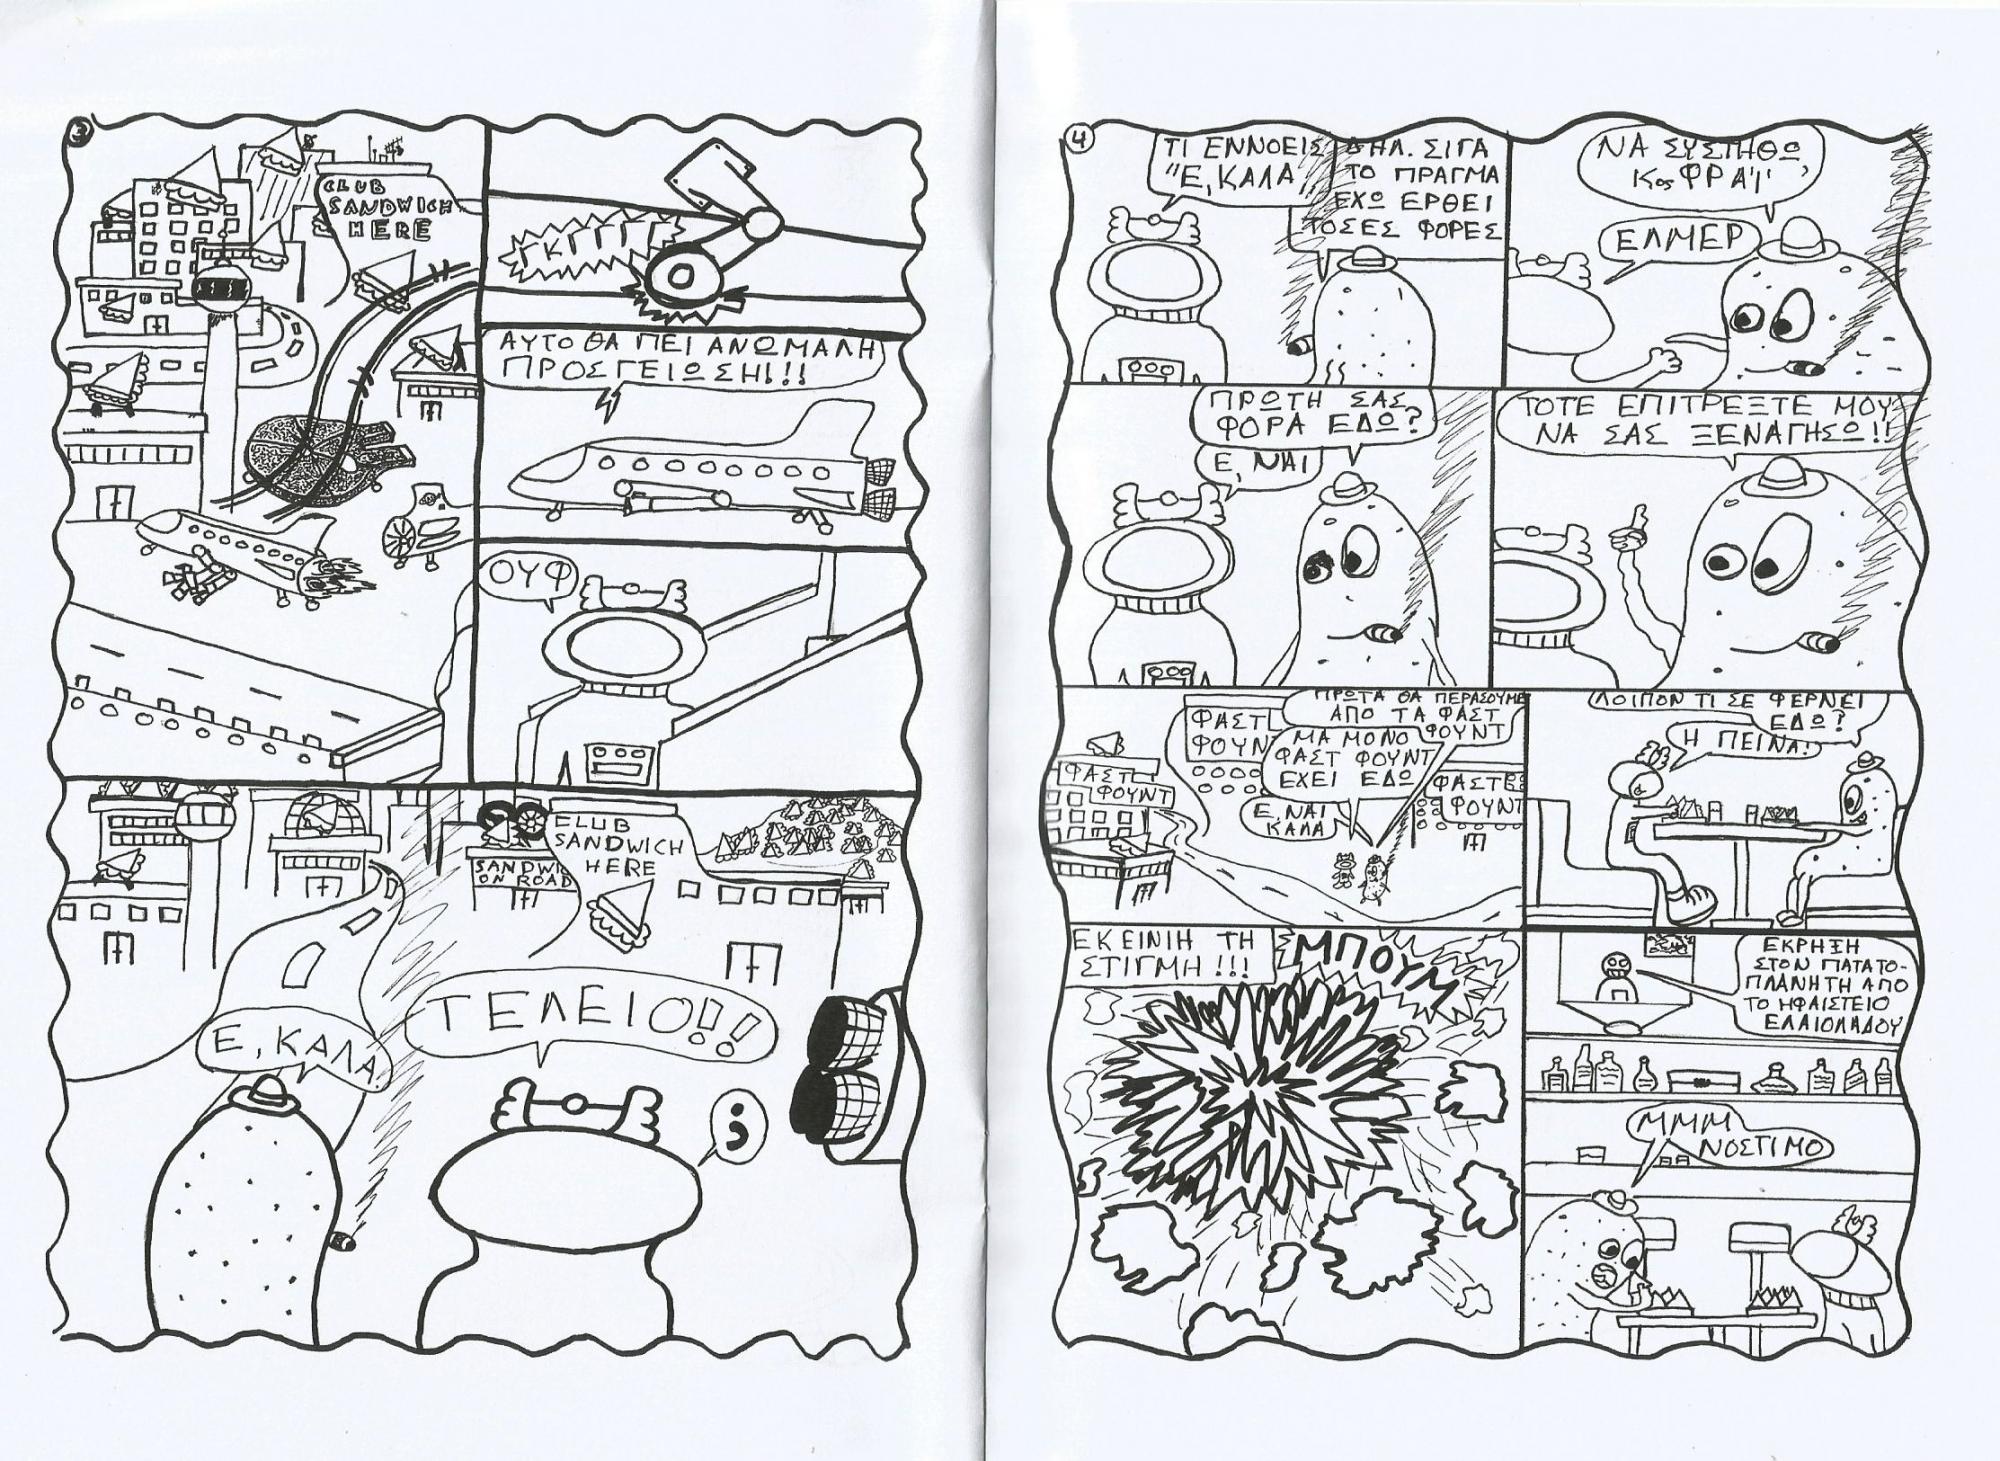 3
CLUB
SANDWICH
HERE
ΓΚΓΓΓ
ΑΥΤΟ ΘΑ ΠΕΙ ΑΝΩΜΑΛΗ
ΠΡΟΣΓΕΙΩΣΗ!!!
ΟΥΦ
CLUB
SANDWICH
HERE
SANDWIC
ON ROAD
Ε, ΚΑΛΑ
ΤΕΛΕΙΟ!!
;
4
ΤΙ ΕΝΝΟΕΙΣ
"Ε, ΚΑΛΑ"
ΔΗΛ. ΣΙΓΑ
ΤΟ ΠΡΑΓΜΑ
ΕΧΩ ΕΡΘΕΙ
ΤΟΣΕΣ ΦΟΡΕΣ
ΝΑ ΣΥΣΤΗΘΩ
Κος ΦΡΑΪ
ΕΛΜΕΡ
ΠΡΩΤΗ ΣΑΣ
ΦΟΡΑ ΕΔΩ?
Ε, ΝΑΙ
ΤΟΤΕ ΕΠΙΤΡΕΞΤΕ ΜΟΥ
ΝΑ ΣΑΣ ΞΕΝΑΓΗΣΩ!!
ΠΡΩΤΑ ΘΑ ΠΕΡΑΣΟΥΜΕ
ΑΠΟ ΤΑ ΦΑΣΤ
ΦΟΥΝΤ
ΜΑ ΜΟΝΟ
ΦΑΣΤ ΦΟΥΝΤ
ΕΧΕΙ ΕΔΩ
Ε, ΝΑΙ
ΚΑΛΑ
ΦΑΣΤ
ΦΟΥΝ
ΦΑΣΤ
ΦΟΥΝΤ
ΦΑΣΤ
ΦΟΥΝΤ
ΛΟΙΠΟΝ ΤΙ ΣΕ ΦΕΡΝΕΙ
ΕΔΩ?
Η ΠΕΙΝΑ!
ΕΚΕΙΝΙΗ ΤΗ
ΣΤΙΓΜΗ!!!
ΜΠΟΥΜ
ΕΚΡΗΞΗ
ΣΤΟΝ ΠΑΤΑΤΟ-
ΠΛΑΝΗΤΗ ΑΠΟ
ΤΟ ΗΦΑΙΣΤΕΙΟ
ΕΛΑΙΟΛΑΔΟΥ
ΜΜΜ
ΝΟΣΤΙΜΟ